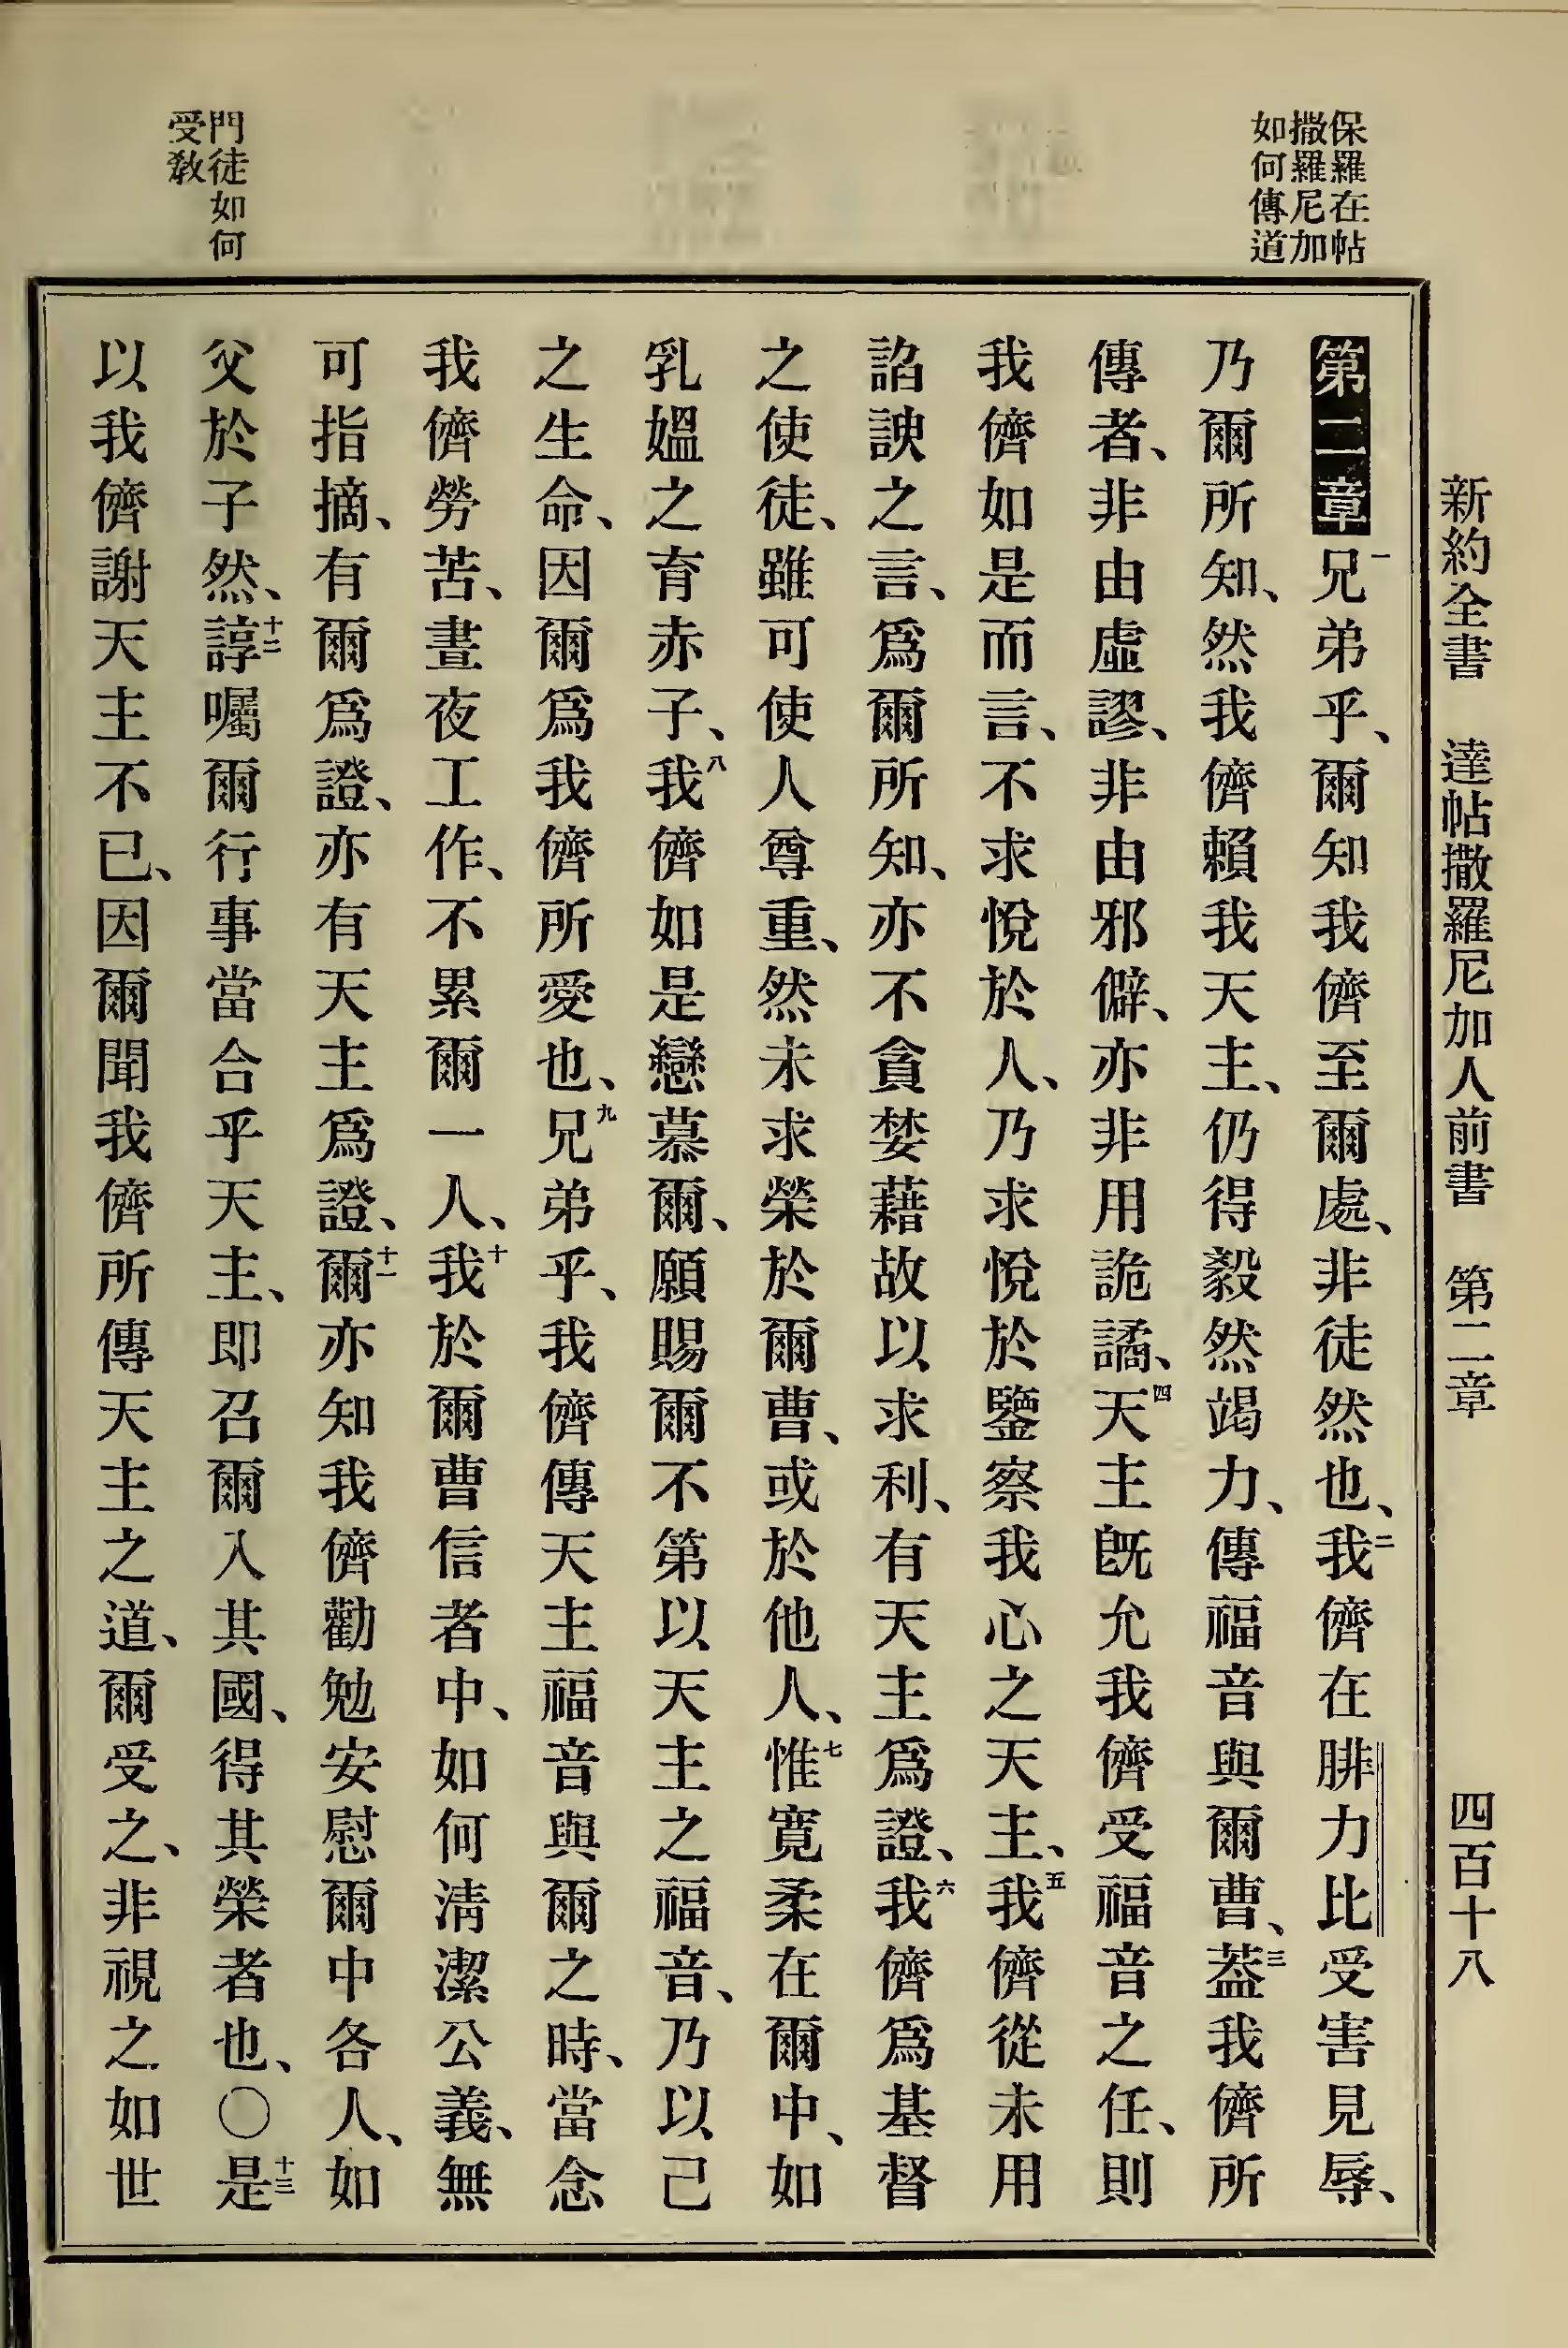 新約全書 達帖撒羅尼加人前書 第二章 四百十八
保羅在帖
撒羅尼加
如何傳道
門徒如何
受教
第二章一兄弟乎、爾知我儕至爾處、非徒然也、二我儕在腓力比受害見辱、
乃爾所知、然我儕賴我天主、仍得毅然竭力、傳福音與爾曹、三蓋我儕所
傳者、非由虛謬、非由邪僻、亦非用詭譎、四天主旣允我儕受福音之任、則
我儕如是而言、不求悅於人、乃求悅於鑒察我心之天主、五我儕從未用
諂諛之言、爲爾所知、亦不貪婪藉故以求利、有天主爲證、六我儕爲基督
之使徒、雖可使人尊重、然未求榮於爾曹、或於他人、七惟寬柔在爾中、如
乳媼之育赤子、八我儕如是戀慕爾、願賜爾不第以天主之福音、乃以己
之生命、因爾爲我儕所愛也、九兄弟乎、我儕傳天主福音與爾之時、當念
我儕勞苦、晝夜工作、不累爾一人、十我於爾曹信者中、如何淸潔公義、無
可指摘、有爾爲證、亦有天主爲證、十一爾亦知我儕勸勉安慰爾中各人、如
父於子然、十二諄囑爾行事當合乎天主、即召爾入其國、得其榮者也、〇十三是
以我儕謝天主不已、因爾聞我儕所傳天主之道、爾受之、非視之如世